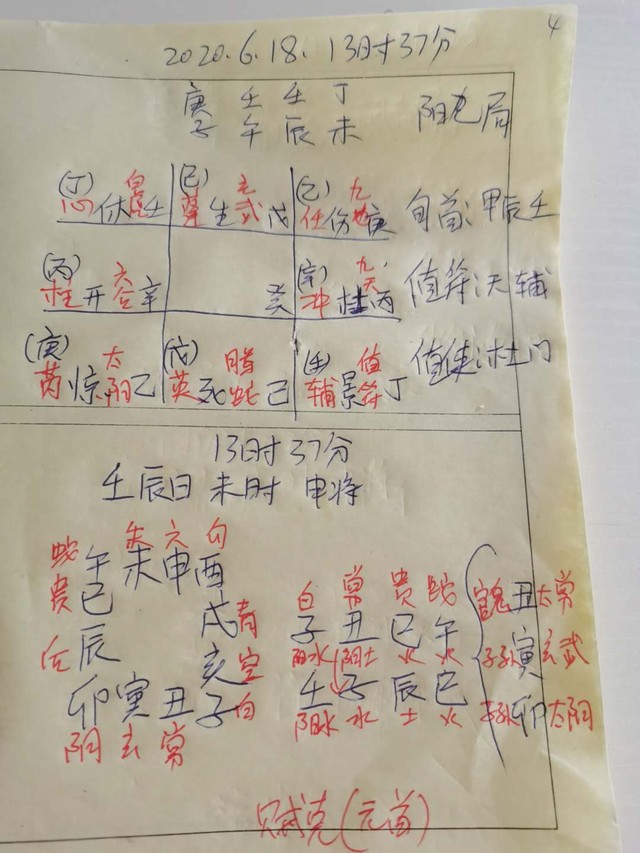 4
2020.6.18. 13时37分
庚 壬 壬 丁
子 午 辰 未 阳九局
(丁) 白虎 (己) 玄武 (乙) 九地
心休 壬 蓬生 戊 任伤 庚 旬首:甲辰壬
(丙) 六合 (辛) 九天
柱开 辛 癸 冲杜丙 值符:天辅
(庚) 太阴 (戊) 腾蛇 (壬) 值符
芮惊 乙 英死 己 辅景 丁 值使:杜门
13时37分
壬辰日 未时 申将
蛇 朱 六 勾
午 未 申 酉
贵 巳 戌 青
后 辰 亥 空
卯 寅 丑 子 白
阴 玄 常
白 常 贵 蛇
子 丑 巳 午 官鬼 丑 太常
阳水 阴土 火 火 子孙 寅 玄武
壬 子 辰 巳
阳水 水 土 火 子孙 卯 太阴
贼克(元首)